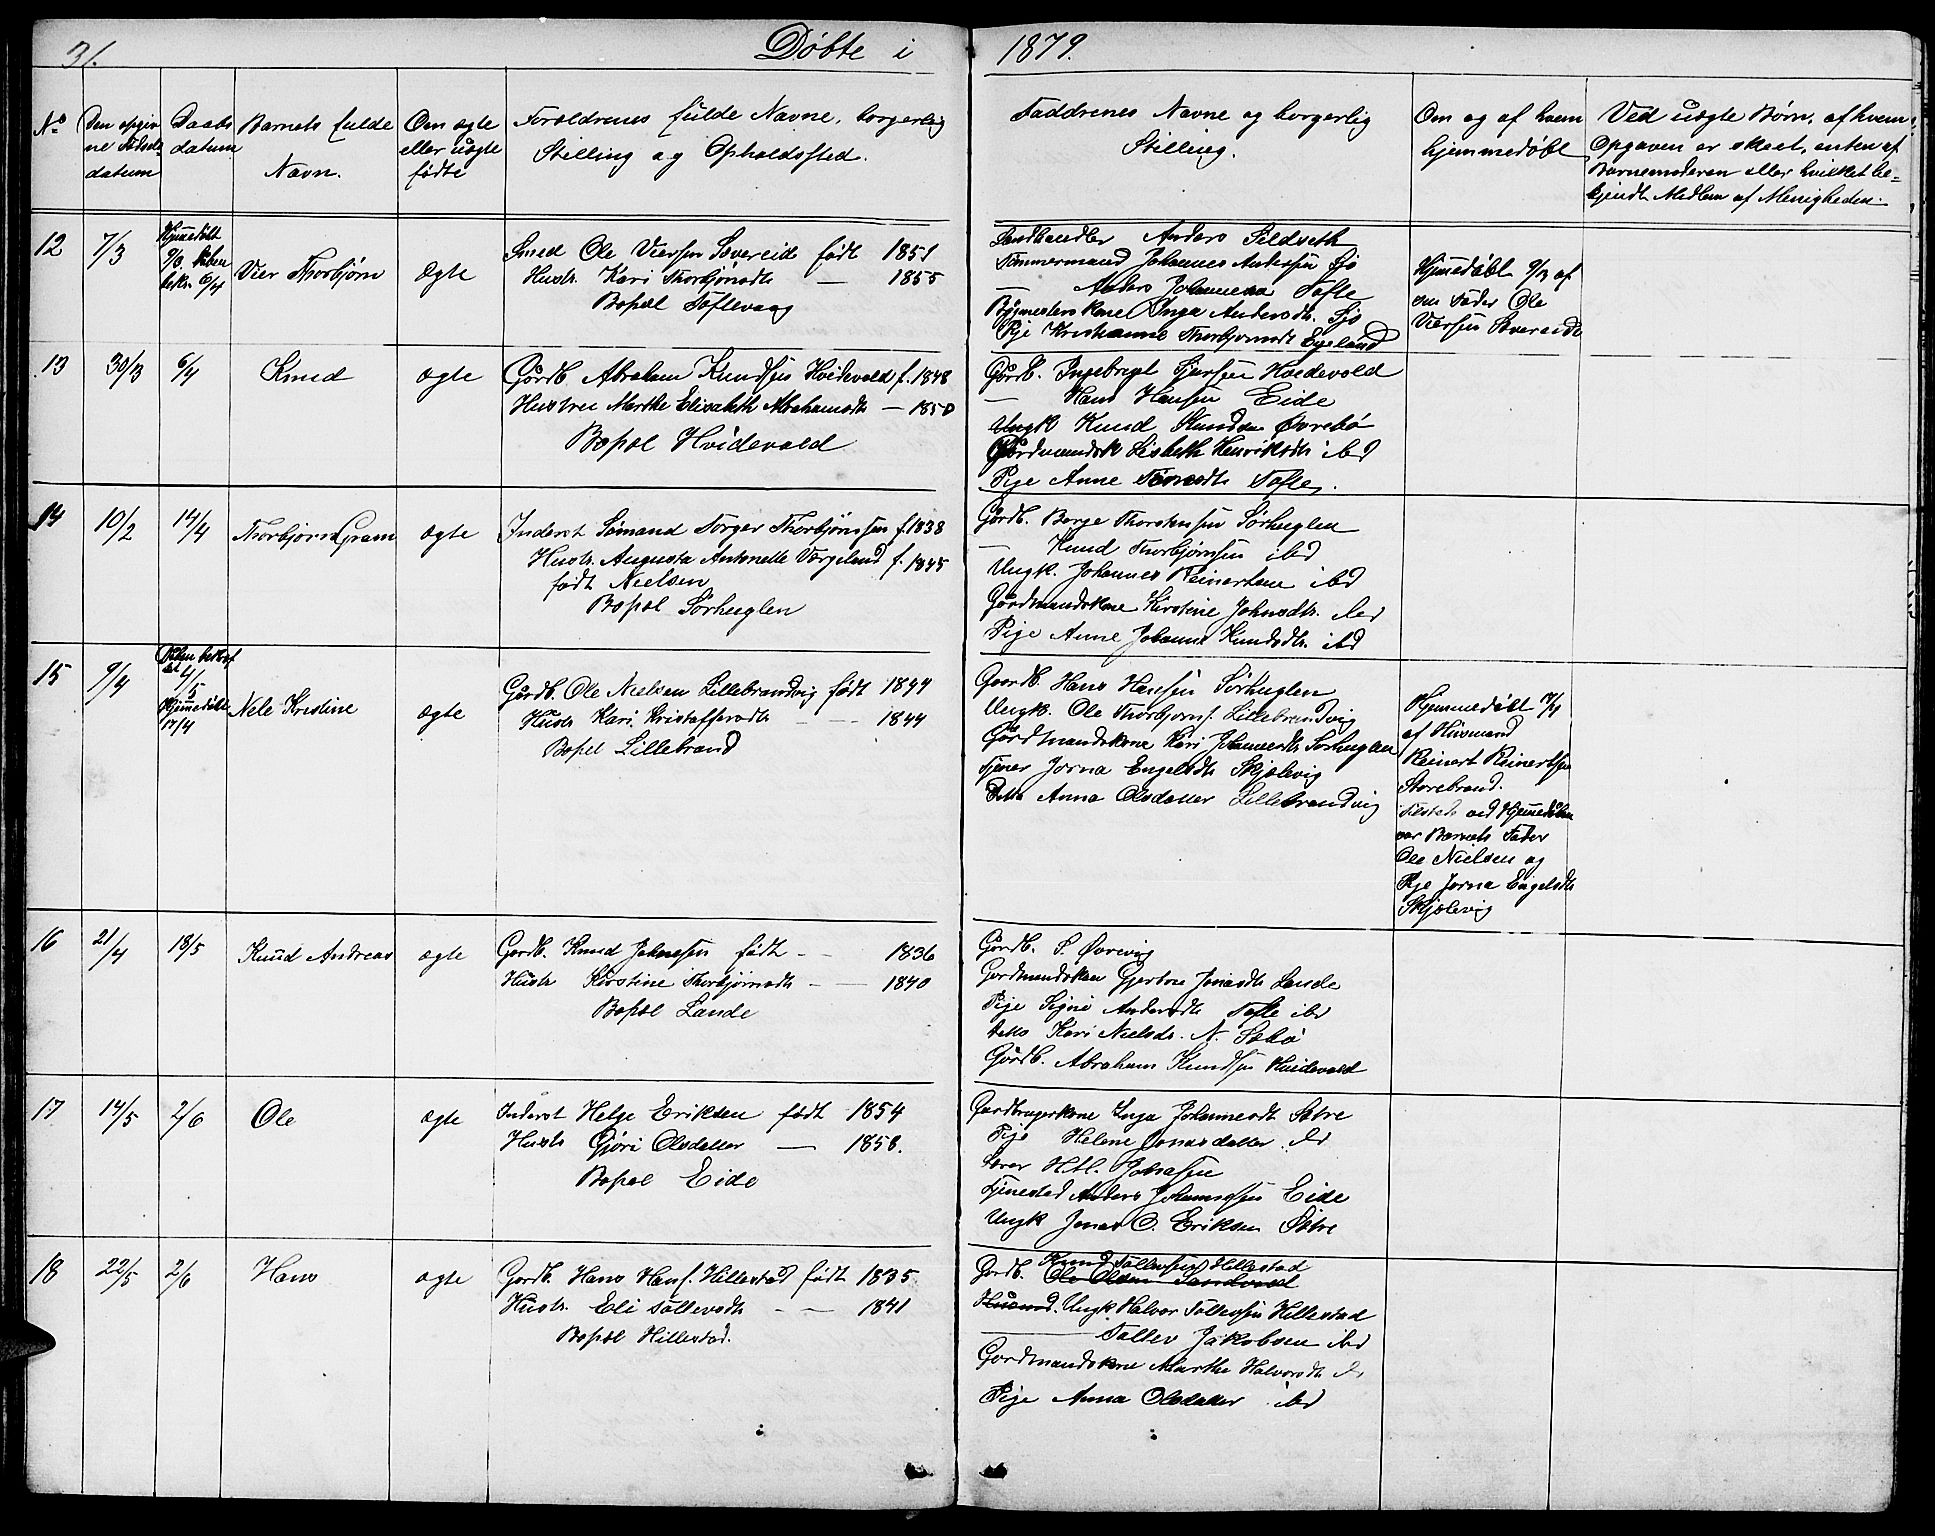 31.
Døbte i 1879.
No
Den opgivne Fødselsdatum
Daabsdatum
Barnets fulde Navn.
Om ægte eller uægte fødte
Forældrenes fulde Navne, borgerlig Stilling og Opholdssted.
Faddrenes Navne og borgerlig Stilling.
Om og af hvem hjemmedøbt
Ved uægte Børn, af hvem Opgaven er skeet, enten af Barnemoderen eller hvilket bekjendt Medlem af Menigheden.
12
7/3
Hjemedøbt 9/3
bekr. 6/4
Vier Thorbjørn
Ægte
Smed Ole Viersen Søvereid født 1851
Hustr. Kari Thorbjønsdtr — 1855
Bopæl Toftevaag
Landhandler Anders Sildseth
Tømmermand Johannes Andersen Sjo
— Anders Johannesen Tofte
Inga Andersdtr. Sjo
Pige Kristianne Thorbjørnsdtr Egeland
Hjemedøbt 9/3 af
Fader Ole
Viersen Søvereide
13
30/3
6/4
Knud
ægte
Gårdb. Abraham Knudsen Hvidevold f. 1848
Hustru Marthe Elisabeth Abrahamsdtr — 1850
Bopæl Hvidevold
Gårdb. Ingebregt Hvidevold
— Hans Hansen Eide
Ungk Knud Knudsen Øvrebø
Gårdmandsk Lisbeth Henriksdtr ibd
Pige Anne Tofte.
14
10/2
14/4
Thorbjørn Gram
ægte
Inderst Sømand Torger Thorbjørnsen f. 1838
Hustr. Augusta Antonette Værgeland f. 1845
født Nielsen
Bopæl Sørhuglen
Gårdb. Børge Thorstensen Sørhuglen
— Knud Thorbjørnsen ibd
Ungk. Johannes Reinertsen ibd
Gårdmandskone Kirstine Johnsdtr. ibd
Pige Anne Johanne Knudsdtr. ibd
15
9/4
4/5
Hjemedøbt
17/4
Nele Kristine
ægte
Gårdb. Ole Nielsen Lillebrandvig født 1844
Hustr Kari Kristoffersdtr — 1844
Bopel Lillebrand
Gaardb. Hans Hansen Sørhuglen
Ungk. Ole Thorbjørns. Lillebrandvig
Gårdmandskone Kari Johannesdtr Sørhuglen
Tjener Jorna Engelsdtr Skjælevig
Ditto Anna Olsdatter Lillebrandvig
Hjemmedøbt 17/4
af Husmand
Reinert Reinertsen
Storebrand.
Tilstede ved Hjemedåben
var Barnets Fader
Ole Nielsen og
Pige Jorna Engelsdtr
Skjælevig
16
21/4
18/5
Knud Andreas
ægte
Gardb. Knud Johnsen født — 1836
Hustr Kirstine Thorbjørnsdtr — 1840
Bopæl Lande
Gårdb. S. Øvrevig
Gardmandskone Gjertine Jonasdtr Lande
Pige Signe Andersdtr Tofte ibd
Ditto Kari Nielsdr. N. Sæbø
Gårdb. Abraham Knudsen Hvidevold
17
14/5
2/6
Ole
ægte
Inderst Helge Eriksen født 1854
Hustr Gjøri Olsdatter — 1858.
Bopæl Eide
Gardbrugerkone Inga Johannesdt Sætre
Pige Helene Jonasdatter ibd
Lærer Johnsen
Anders Johannessen Eide
Ungk Jonas O. Eriksen Sætre
18
22/5
2/6
Hans
ægte
Gardb. Hans Hans. Hillestad født 1835.
Hustr. Eli Tollevsdtr — 1841
Bopæl Hillestad.
Knud Tollevsen Hillestad
Gardb. Ole Olsen Sandvold
Husmd. Ungk. Halvor Tollevsen Hillestad
— Tollev Jakobsen ibd
Gardmandskone Marthe Halvorsdtr ibd
Pige Anna Olsdatter ibd